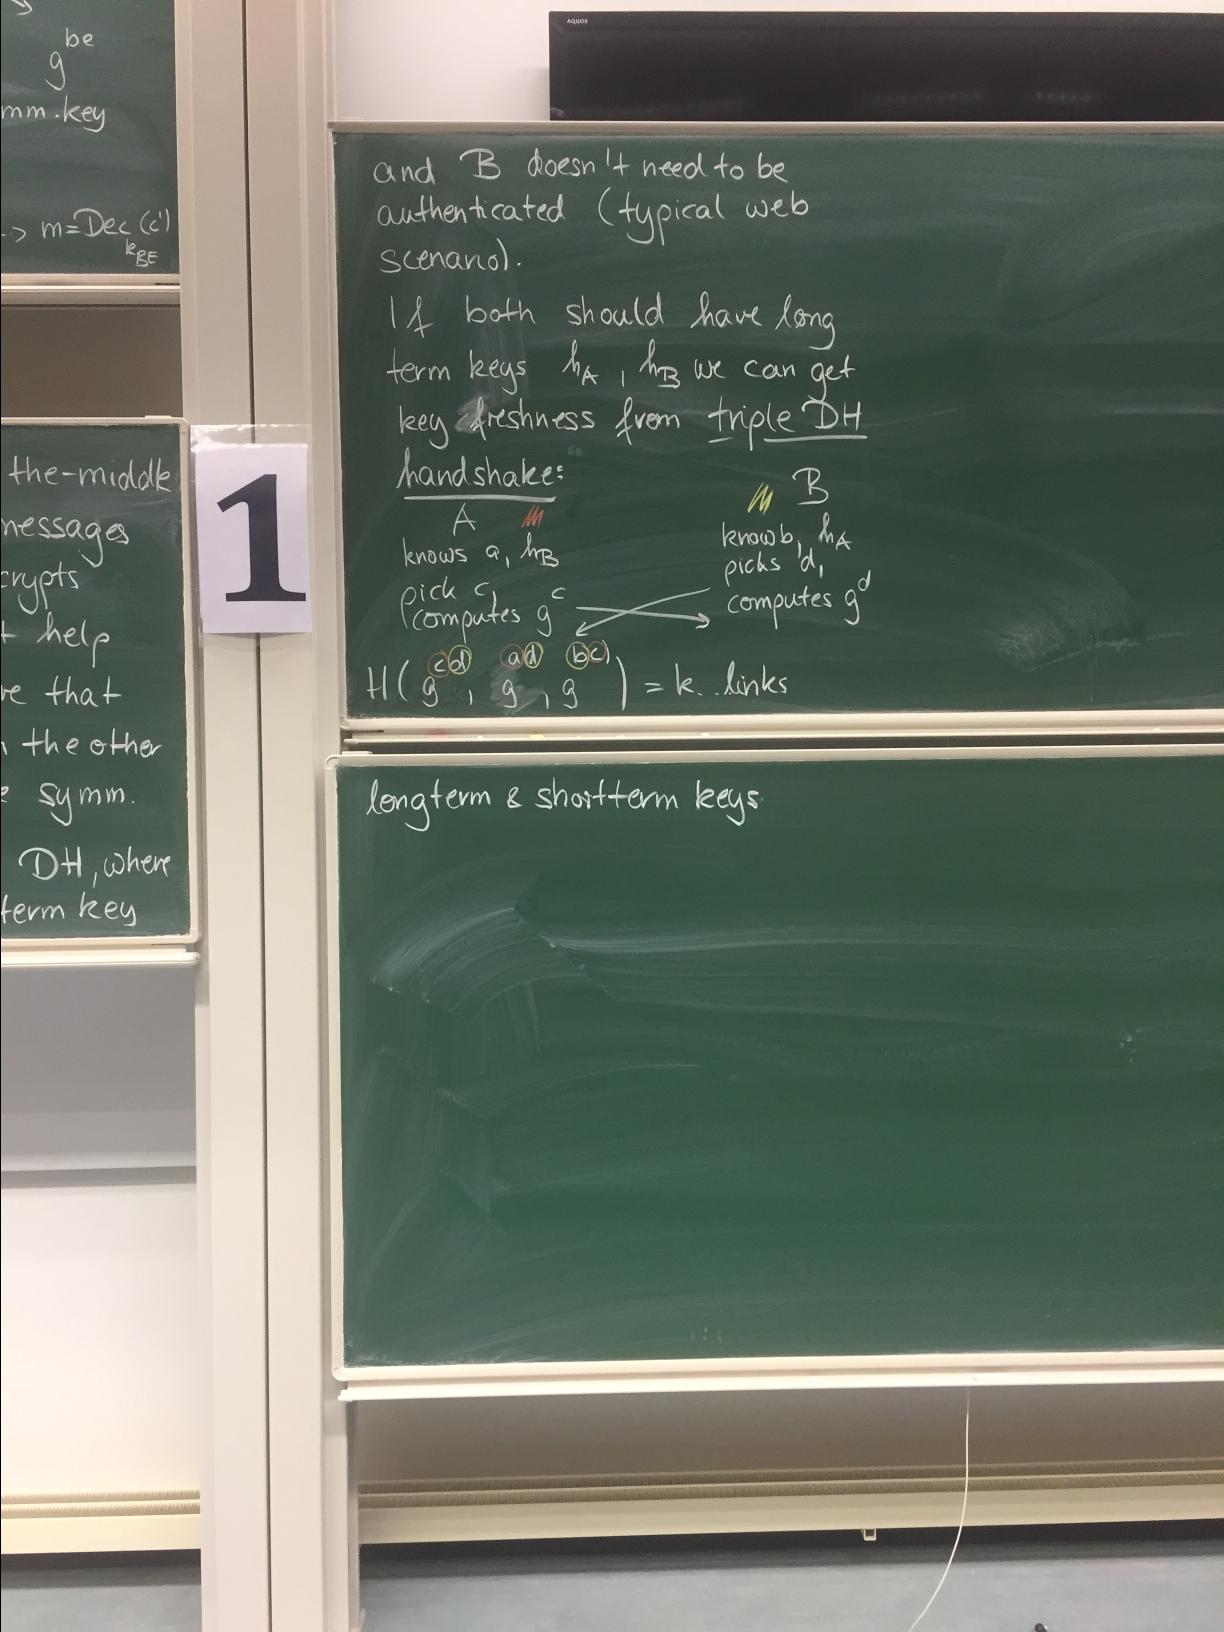 be
g
mm. key
-> m=Dec (c')
k_BE
the-middle
messages
crypts
help
that
the other
symm.
DH, where
term key
1
AQUOS
and B doesn't need to be
authenticated (typical web
scenario).
If both should have long
term keys h_A, h_B we can get
key freshness from triple DH
handshake:
A
knows a, h_B
pick c,
computes g^c
B
know b, h_A
picks d,
computes g^d
H( g^cd, g^ad, g^bc ) = k.. links
longterm & shortterm keys.